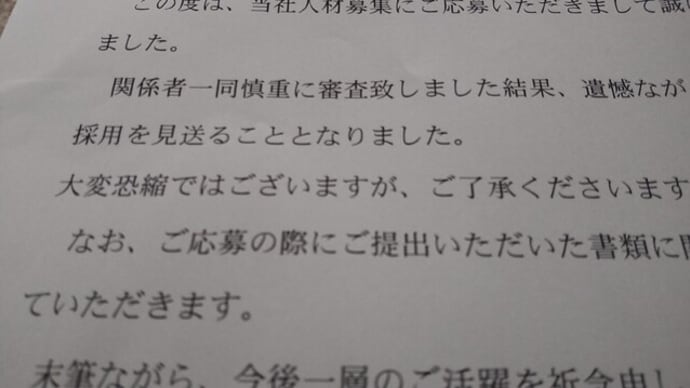 この度は、当社人材募集にご応募いただきまして誠に
ました。
関係者一同慎重に審査致しました結果、遺憾なが
採用を見送ることとなりました。
大変恐縮ではございますが、ご了承くださいます
なお、ご応募の際にご提出いただいた書類に
ていただきます。
末筆ながら、今後一層のご活躍を祈念申し